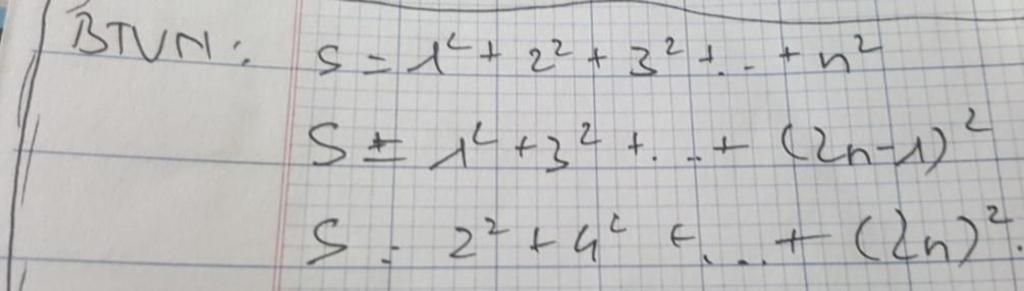 BTVN: S = 1² + 2² + 3² + .. + n²
S = 1² + 3² + ... + (2n-1)²
S = 2² + 4² + ... + (2n)².